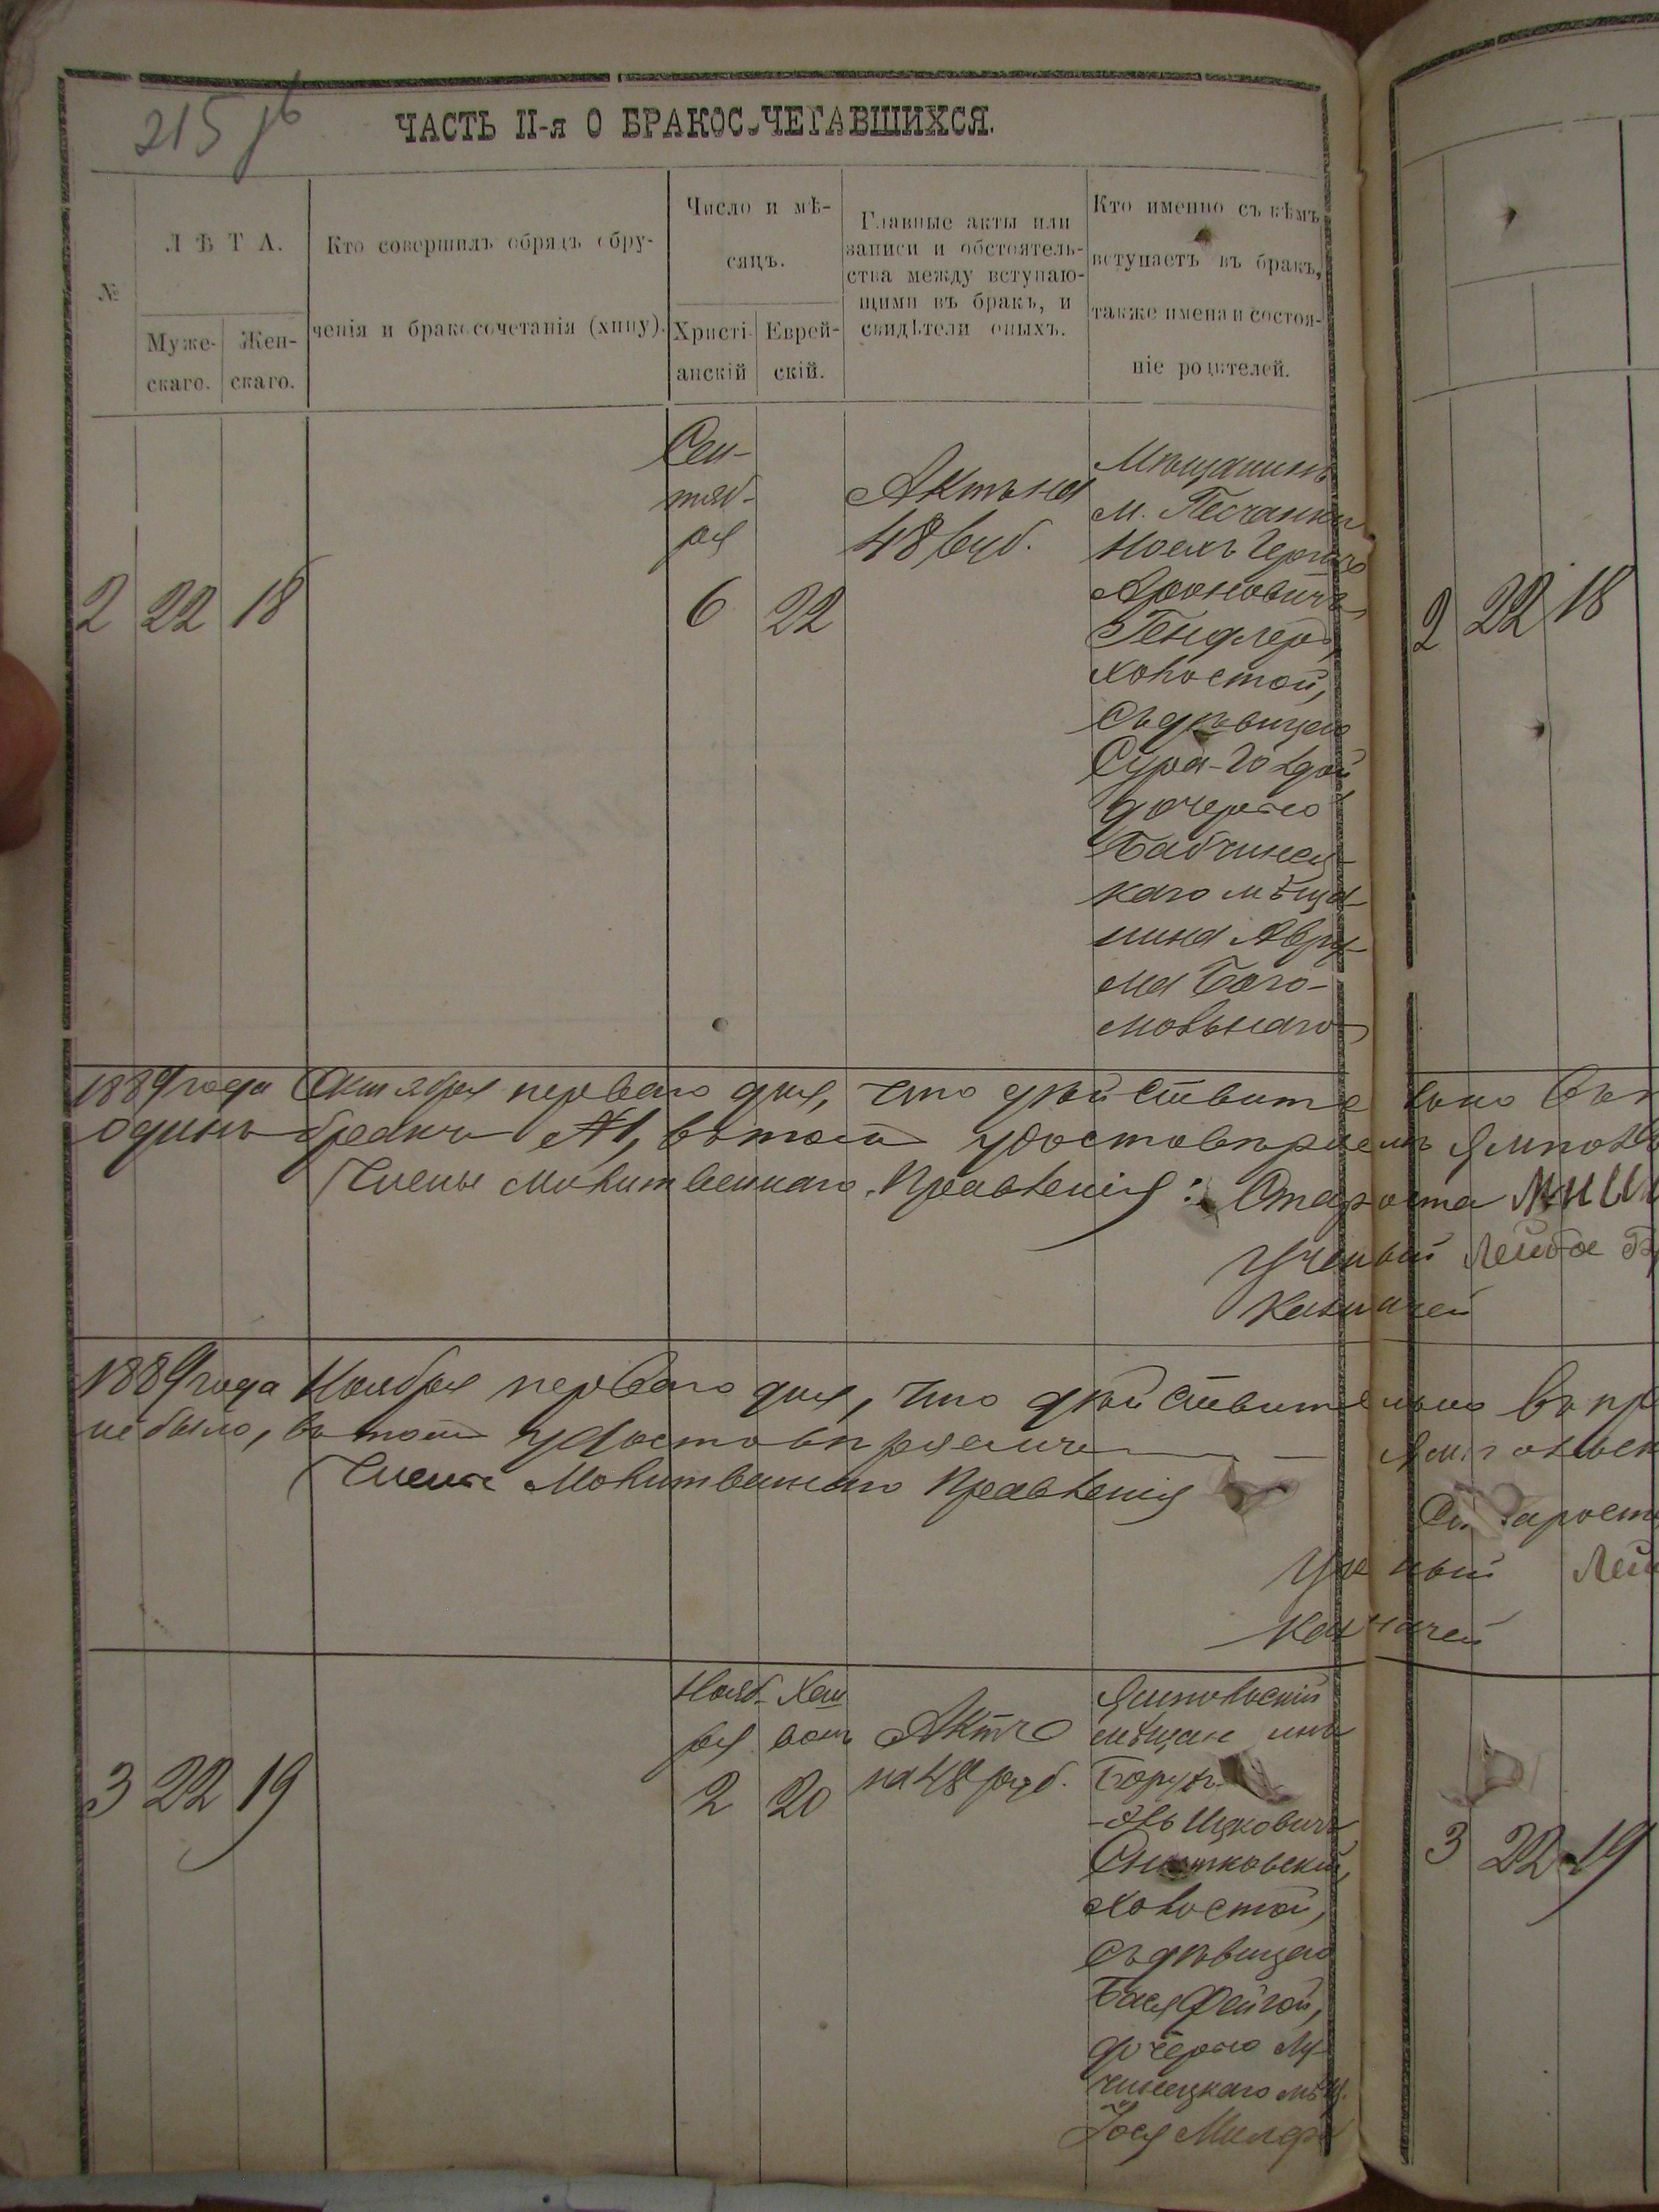 215 об
ЧАСТЬ II-я О БРАКОСОЧЕТАВШИХСЯ.
№
ЛѢТА.
Муже-
скаго.
Жен-
скаго.
Кто совершилъ обрядъ обру-
ченія и бракосочетанія (хипу).
Число и мѣ-
сяцъ.
Христі-
анскій
Еврей-
скій.
Главные акты или
записи и обстоятель-
ства между вступаю-
щими въ бракъ, и
свидѣтели оныхъ.
Кто именно съ кѣмъ
вступаетъ въ бракъ,
также имена и состоя-
ніе родителей.
2 22 18
Сен-
тяб-
ря
6 22
Актъ на
48 руб.
Мѣщанинъ
м. Песчанки
Гершъ
Ароновичъ
Гендлеръ,
холостой,
съ дѣвицею
Сура-Голдой
дочерью
Бабчинец-
каго мѣща-
нина Авру-
ма Бого-
мольнаго
2 22 18
1889 года Октября перваго дня, что дѣйствительно въ
одинъ бракъ №1, въ томъ удостовѣряемъ
Члены Молитвеннаго Правленія: Староста
Ученый Лейба
Казначей
1889 года Ноября перваго дня, что дѣйствительно въ
не было, въ томъ удостовѣряемъ
Члены Молитвеннаго Правленія
Староста
Ученый
Казначей
3 22 19
Нояб-
ря
2
Хеш
вонъ
20
Актъ
на 48 руб.
Ямпольскій
мѣщанинъ
Борух
Ицковичъ
Снитковскій,
холостой,
съ дѣвицею
Бася Фейгой,
дочерью Лу-
чинецкаго мѣщ.
Йося
3 22 19